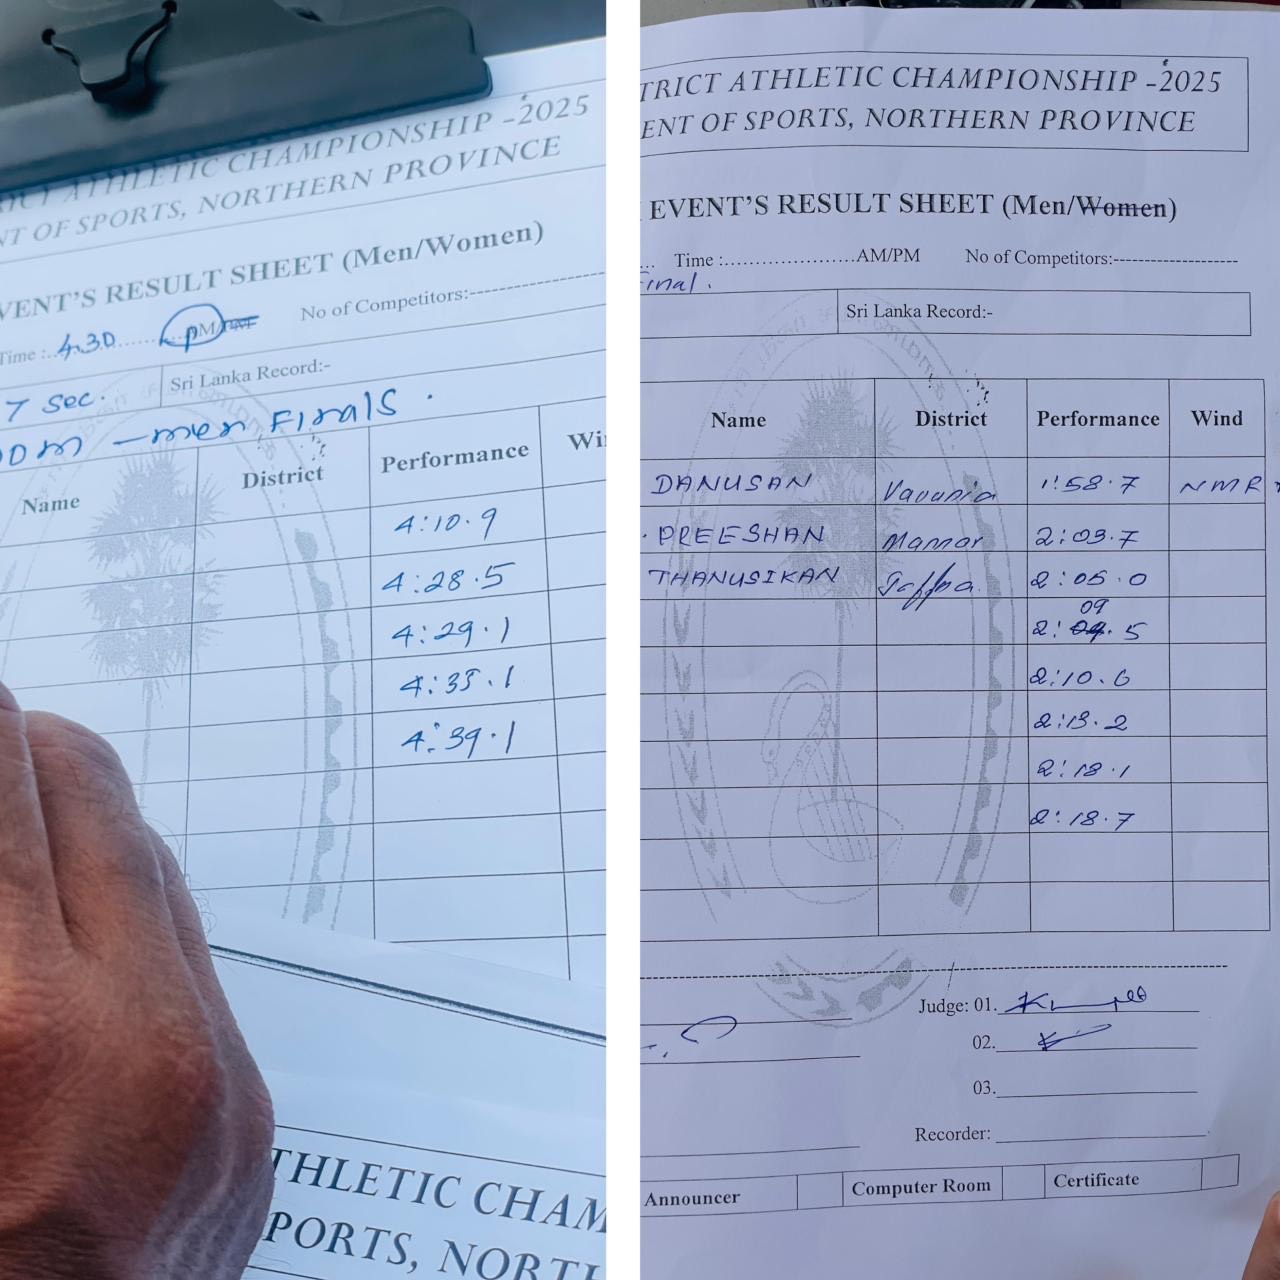 RICT ATHLETIC CHAMPIONSHIP -2025
NT OF SPORTS, NORTHERN PROVINCE
VENT'S RESULT SHEET (Men/Women)
Time :..4.30.........pM/PM No of Competitors:--------------------
7 sec. Sri Lanka Record:-
00m - men Finals.
Name District Performance Wi
4:10.9
4:28.5
4:29.1
4:35.1
4:39.1
THLETIC CHAM
PORTS, NORT
TRICT ATHLETIC CHAMPIONSHIP -2025
ENT OF SPORTS, NORTHERN PROVINCE
EVENT'S RESULT SHEET (Men/Women)
Time :......................AM/PM No of Competitors:--------------------
inal.
Sri Lanka Record:-
Name District Performance Wind
DANUSAN Vavunia 1:58.7 NMR
PREESHAN Mannar 2:03.7
THANUSIKAN Jaffna 2:05.0
09
2: .5
2:10.6
2:13.2
2:18.1
2:18.7
Judge: 01.
02.
03.
Recorder:
Announcer Computer Room Certificate